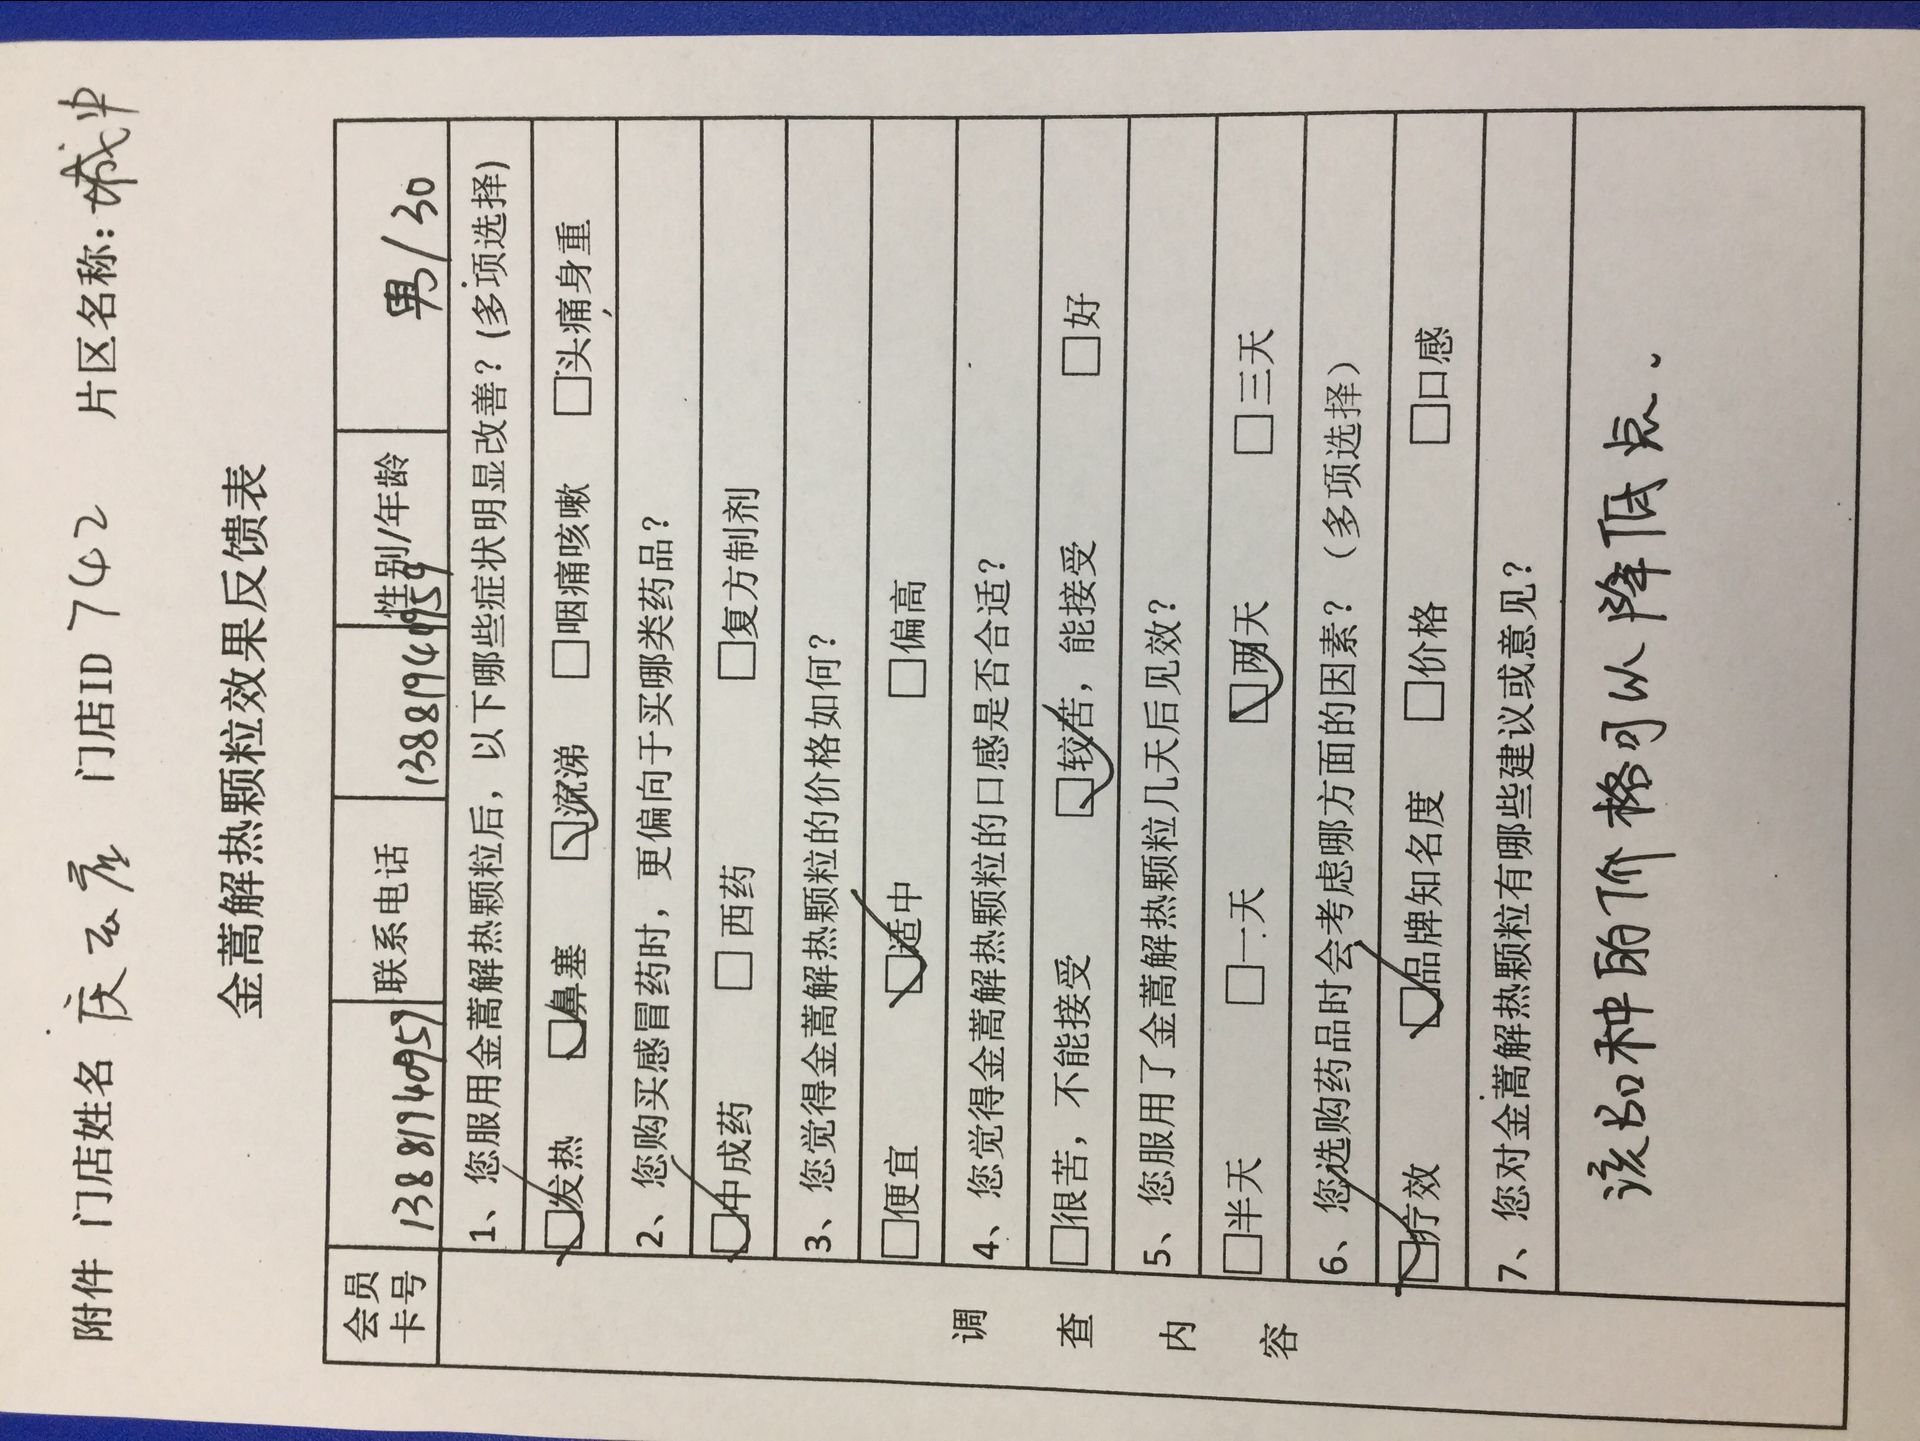 附件 门店姓名 庆云店 门店ID 742 片区名称：城中
金蒿解热颗粒效果反馈表
会员卡号 13881940959 联系电话 13881940959 性别/年龄 男/30
调查内容
1、您服用金蒿解热颗粒后，以下哪些症状明显改善？(多项选择)
☑发热 ☑鼻塞 ☑流涕 □咽痛咳嗽 □头痛身重
2、您购买感冒药时，更偏向于买哪类药品？
☑中成药 □西药 □复方制剂
3、您觉得金蒿解热颗粒的价格如何？
□便宜 ☑适中 □偏高
4、您觉得金蒿解热颗粒的口感是否合适？
□很苦，不能接受 ☑较苦，能接受 □好
5、您服用了金蒿解热颗粒几天后见效？
□半天 □一天 ☑两天 □三天
6、您选购药品时会考虑哪方面的因素？（多项选择）
☑疗效 ☑品牌知名度 □价格 □口感
7、您对金蒿解热颗粒有哪些建议或意见？
该品种的价格可以降低点.